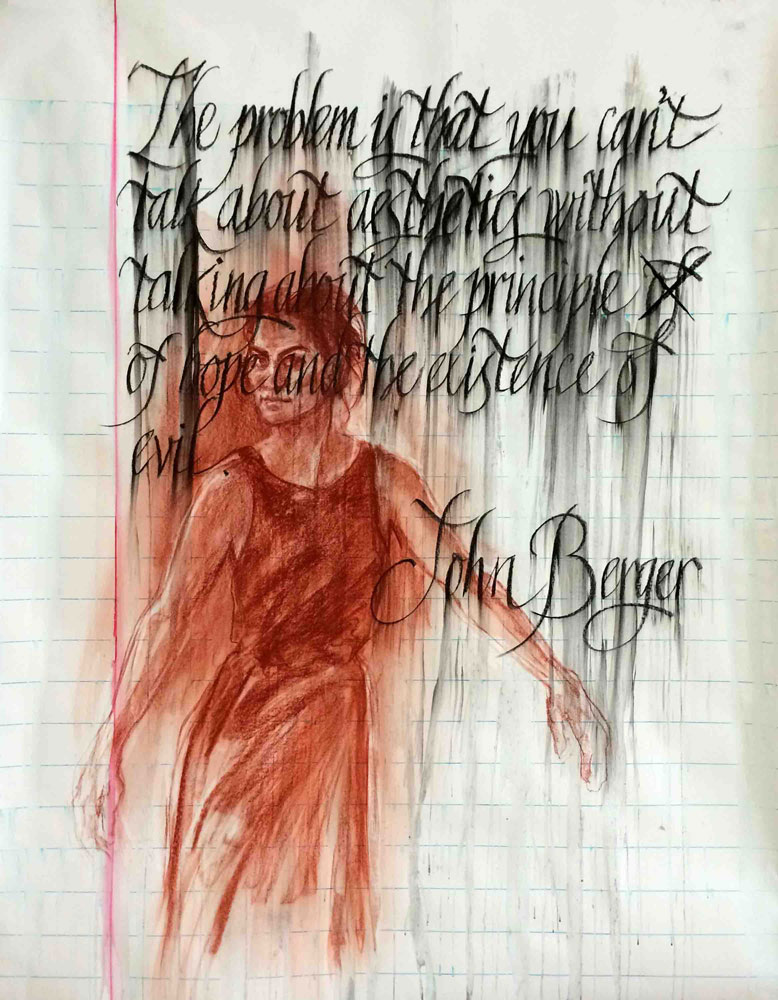 The problem is that you can't
talk about aesthetics without
talking about the principle of
of hope and the existence of
evil.
John Berger